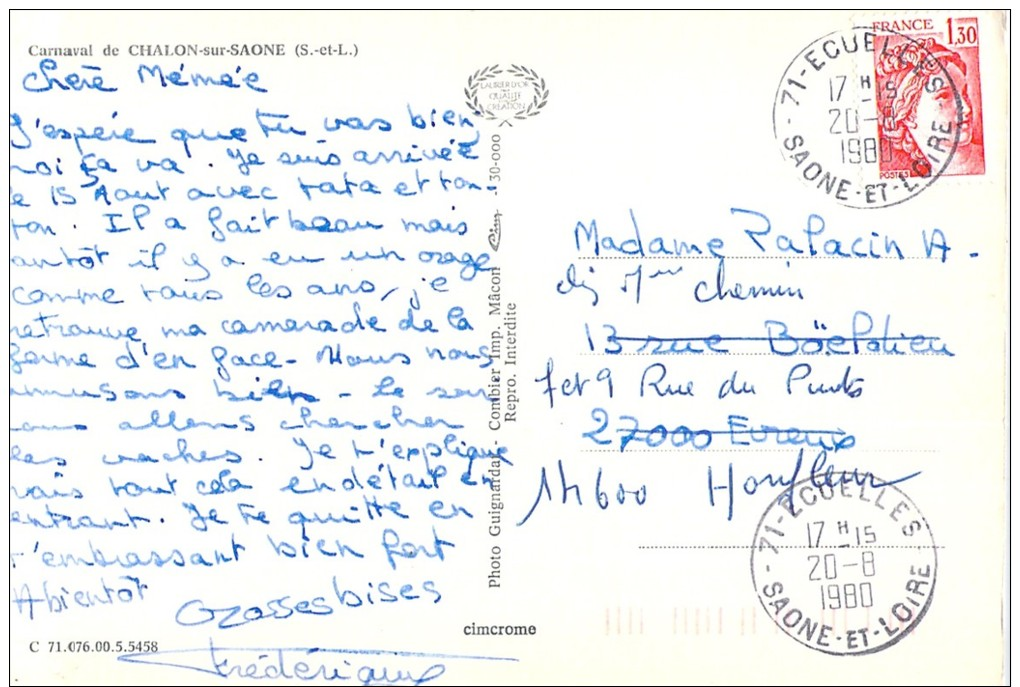 Carnaval de CHALON-sur-SAONE (S.-et-L.)
Chère Mémée
J'espère que tu vas bien,
moi ça va. Je suis arrivée
le 15 Aout avec tata et ton-
ton. Il a fait beau mais
tantôt il y a eu un orage
comme tous les ans, je
retrouve ma camarade de la
ferme d'en face. Nous nous
amusons bien. Le soir
nous allons chercher
les vaches. Je t'explique
rais tout cela en détail en
rentrant. Je te quitte en
t'embrassant bien fort
A bientôt
Grosses bises
Frédérique
C 71.076.00.5.5458
LAURIER D'OR
QUALITÉ
CRÉATION
Photo Guignarda - Combier Imp. Mâcon 30-000
Repro. Interdite
cimcrome
FRANCE 1,30
POSTES
71-ECUELLES
17 H-15
20-8
1980
SAONE-ET-LOIRE
Madame Palacin A.
chemin
13 rue Boëldieu
7 et 9 Rue du Puits
27000 Evreux
14600 Honfleur
71-ECUELLES
17 H-15
20-8
1980
SAONE-ET-LOIRE